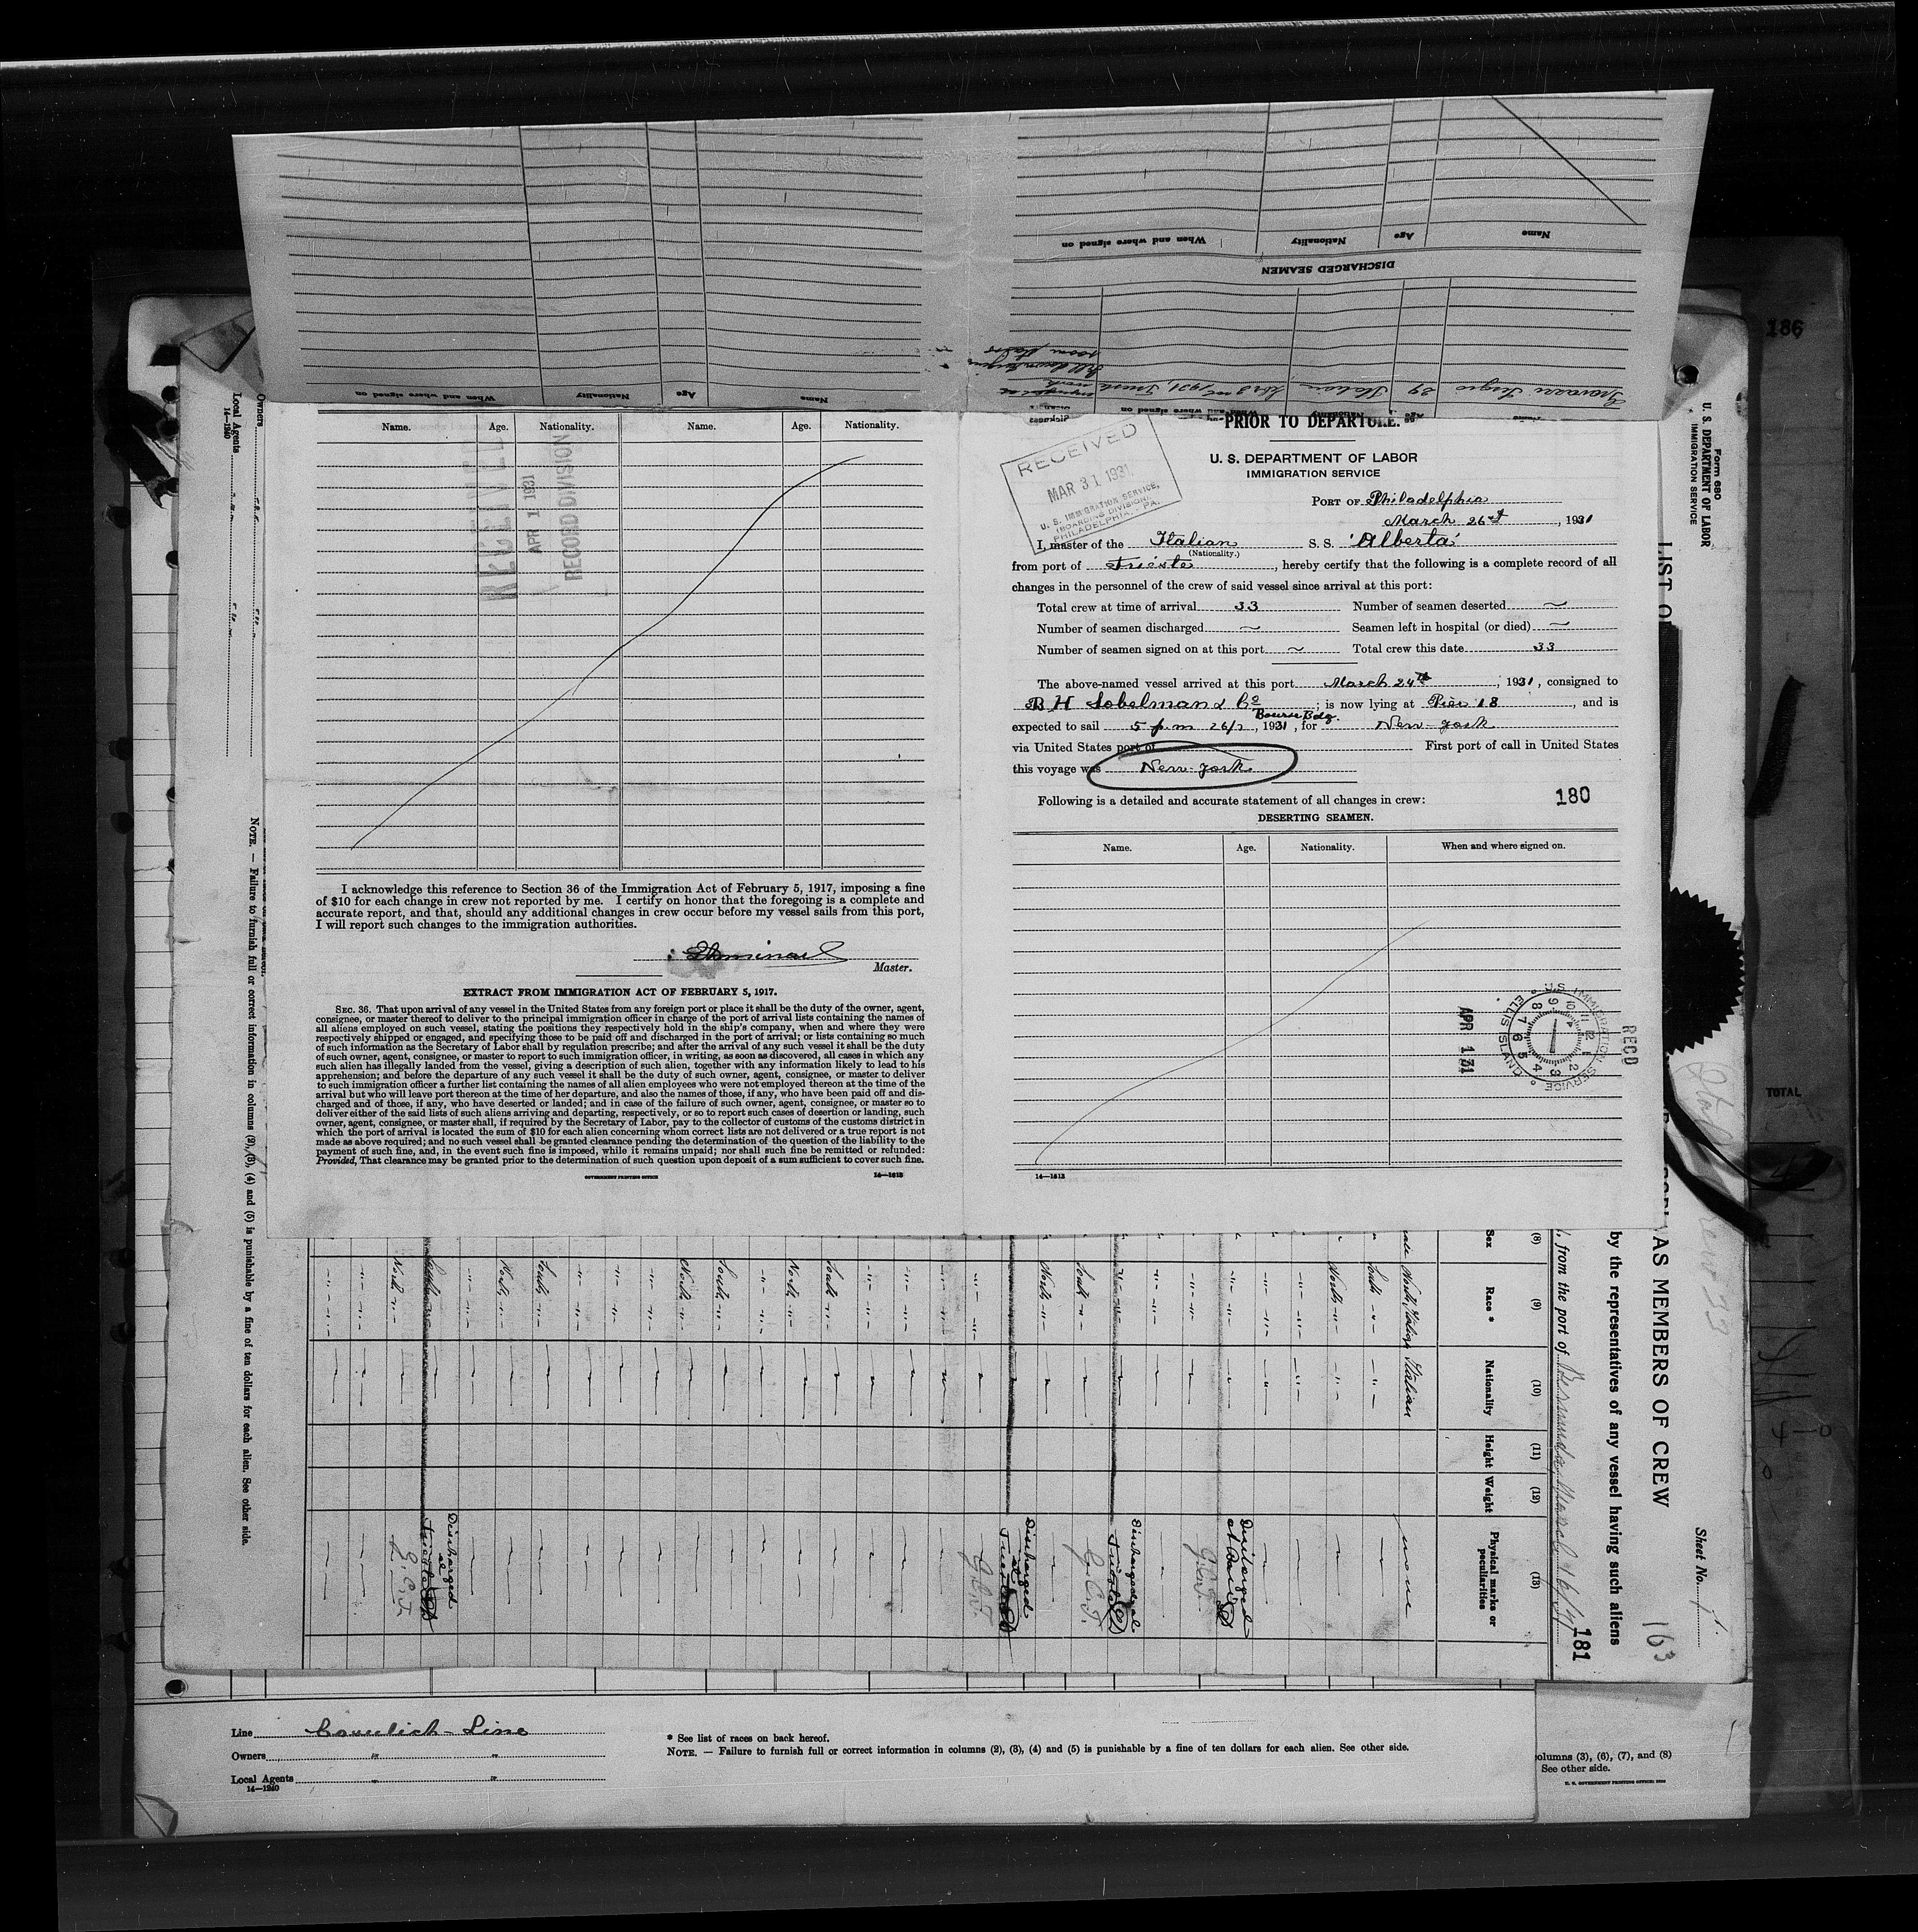 Name
Age
Nationality
When and where signed on
DISCHARGED SEAMEN
Italian
When and where signed on
Nationality
Age
Name
186
Name. Age. Nationality. Name. Age. Nationality.
RECEIVED
APR 1 1931
RECORD DIVISION
I acknowledge this reference to Section 36 of the Immigration Act of February 5, 1917, imposing a fine
of $10 for each change in crew not reported by me. I certify on honor that the foregoing is a complete and
accurate report, and that, should any additional changes in crew occur before my vessel sails from this port,
I will report such changes to the immigration authorities.
Master.
EXTRACT FROM IMMIGRATION ACT OF FEBRUARY 5, 1917.
SEC. 36. That upon arrival of any vessel in the United States from any foreign port or place it shall be the duty of the owner, agent,
consignee, or master thereof to deliver to the principal immigration officer in charge of the port of arrival lists containing the names of
all aliens employed on such vessel, stating the positions they respectively hold in the ship's company, when and where they were
respectively shipped or engaged, and specifying those to be paid off and discharged in the port of arrival; or lists containing so much
of such information as the Secretary of Labor shall by regulation prescribe; and after the arrival of any such vessel it shall be the duty
of such owner, agent, consignee, or master to report to such immigration officer, in writing, as soon as discovered, all cases in which any
such alien has illegally landed from the vessel, giving a description of such alien, together with any information likely to lead to his
apprehension; and before the departure of any such vessel it shall be the duty of such owner, agent, consignee, or master to deliver
to such immigration officer a further list containing the names of all alien employees who were not employed thereon at the time of the
arrival but who will leave port thereon at the time of her departure, and also the names of those, if any, who have been paid off and dis-
charged and of those, if any, who have deserted or landed; and in case of the failure of such owner, agent, consignee, or master so to
deliver either of the said lists of such aliens arriving and departing, respectively, or so to report such cases of desertion or landing, such
owner, agent, consignee, or master shall, if required by the Secretary of Labor, pay to the collector of customs of the customs district in
which the port of arrival is located the sum of $10 for each alien concerning whom correct lists are not delivered or a true report is not
made as above required; and no such vessel shall be granted clearance pending the determination of the question of the liability to the
payment of such fine, and, in the event such fine is imposed, while it remains unpaid; nor shall such fine be remitted or refunded:
Provided, That clearance may be granted prior to the determination of such question upon deposit of a sum sufficient to cover such fine.
GOVERNMENT PRINTING OFFICE 14—1613
PRIOR TO DEPARTURE.
U. S. DEPARTMENT OF LABOR
IMMIGRATION SERVICE
RECEIVED
MAR 31 1931
U. S. IMMIGRATION SERVICE,
(BOARDING DIVISION)
PHILADELPHIA, PA.
PORT OF Philadelphia
March 26th, 1931
I, master of the Italian S. S. 'Alberta'
(Nationality.)
from port of Trieste, hereby certify that the following is a complete record of all
changes in the personnel of the crew of said vessel since arrival at this port:
Total crew at time of arrival 33 Number of seamen deserted ~
Number of seamen discharged ~ Seamen left in hospital (or died) ~
Number of seamen signed on at this port ~ Total crew this date 33
The above-named vessel arrived at this port March 24th, 1931, consigned to
B H Sobelman & Co; is now lying at Pier 18, and is
Bourse Bdg.
expected to sail 5 p.m 26/3, 1931, for New-York
via United States port of First port of call in United States
this voyage was New-York
Following is a detailed and accurate statement of all changes in crew: 180
DESERTING SEAMEN.
Name. Age. Nationality. When and where signed on.
RECD
U.S. IMMIGRATION SERVICE
ELLIS ISLAND
APR 1 31
14—1613
Form 680
U. S. DEPARTMENT OF LABOR
IMMIGRATION SERVICE
LIST OF
AS MEMBERS OF CREW
Sheet No. 1.
163
by the representatives of any vessel having such aliens
, from the port of Bermuda, March 16/31
181
(8) (9) (10) (11) (12) (13)
Sex Race * Nationality Height Weight Physical marks or peculiarities
North Italian Italian none
South
North
Discharged
Discharged at
Trieste
G.C.T.
Discharged
at
Trieste
Discharged
at
Trieste
TOTAL
Owners
Local Agents
14—1240
NOTE. — Failure to furnish full or correct information in columns (2), (3), (4) and (5) is punishable by a fine of ten dollars for each alien. See other side.
Line Cosulich-Line
Owners " "
Local Agents " "
14—1240
* See list of races on back hereof.
NOTE. — Failure to furnish full or correct information in columns (2), (3), (4) and (5) is punishable by a fine of ten dollars for each alien. See other side.
columns (3), (6), (7), and (8)
See other side.
U. S. GOVERNMENT PRINTING OFFICE